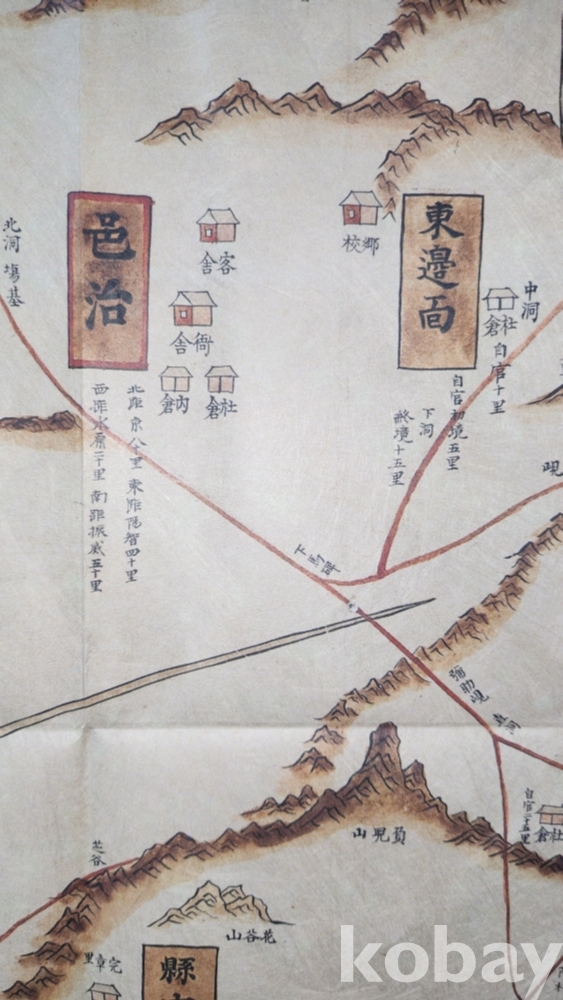 北洞
場基
邑治
客舍
衙舍
內倉
社倉
北距京八十里
東距陽智四十里
西距水原二十里
南距振威五十里
鄕校
東邊面
中洞
社倉
自官十里
自官初境五里
下洞
終境十五里
峴
下馬碑
自官二十五里
社倉
負兒山
芝谷
花谷山
完章里
縣
kobay